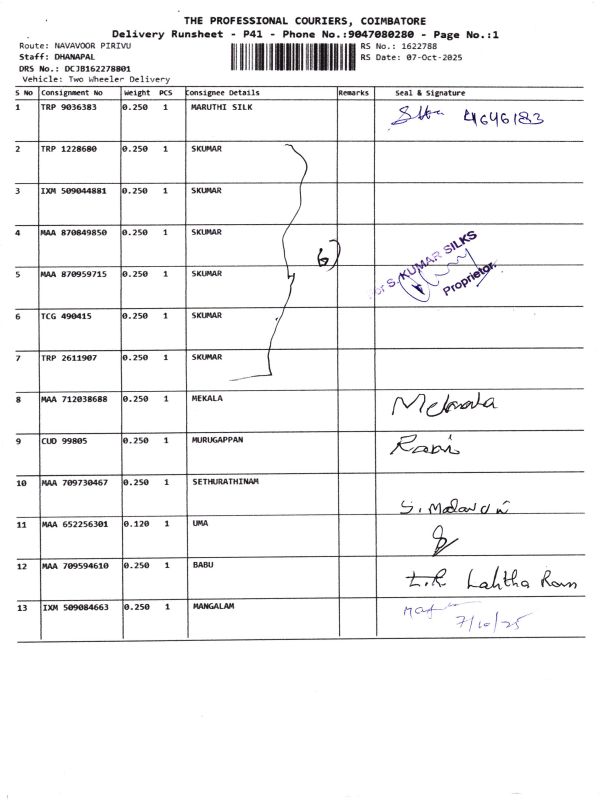 THE PROFESSIONAL COURIERS, COIMBATORE
Delivery Runsheet - P41 - Phone No.:9047080280 - Page No.:1
Route: NAVAVOOR PIRIVU
RS No.: 1622788
Staff: DHANAPAL
RS Date: 07-Oct-2025
DRS No.: DCJB162278801
Vehicle: Two Wheeler Delivery
S No Consignment No Weight PCS Consignee Details Remarks Seal & Signature
1 TRP 9036383 0.250 1 MARUTHI SILK
2 TRP 1228680 0.250 1 SKUMAR
3 IXM 509044881 0.250 1 SKUMAR
4 MAA 870849850 0.250 1 SKUMAR
6)
For S. KUMAR SILKS
Proprietor.
5 MAA 870959715 0.250 1 SKUMAR
6 TCG 490415 0.250 1 SKUMAR
7 TRP 2611907 0.250 1 SKUMAR
8 MAA 712038688 0.250 1 MEKALA Mekala
9 CUD 99805 0.250 1 MURUGAPPAN Rani
10 MAA 709730467 0.250 1 SETHURATHINAM
11 MAA 652256301 0.120 1 UMA
12 MAA 709594610 0.250 1 BABU Lalitha Ram
13 IXM 509084663 0.250 1 MANGALAM
7/10/25